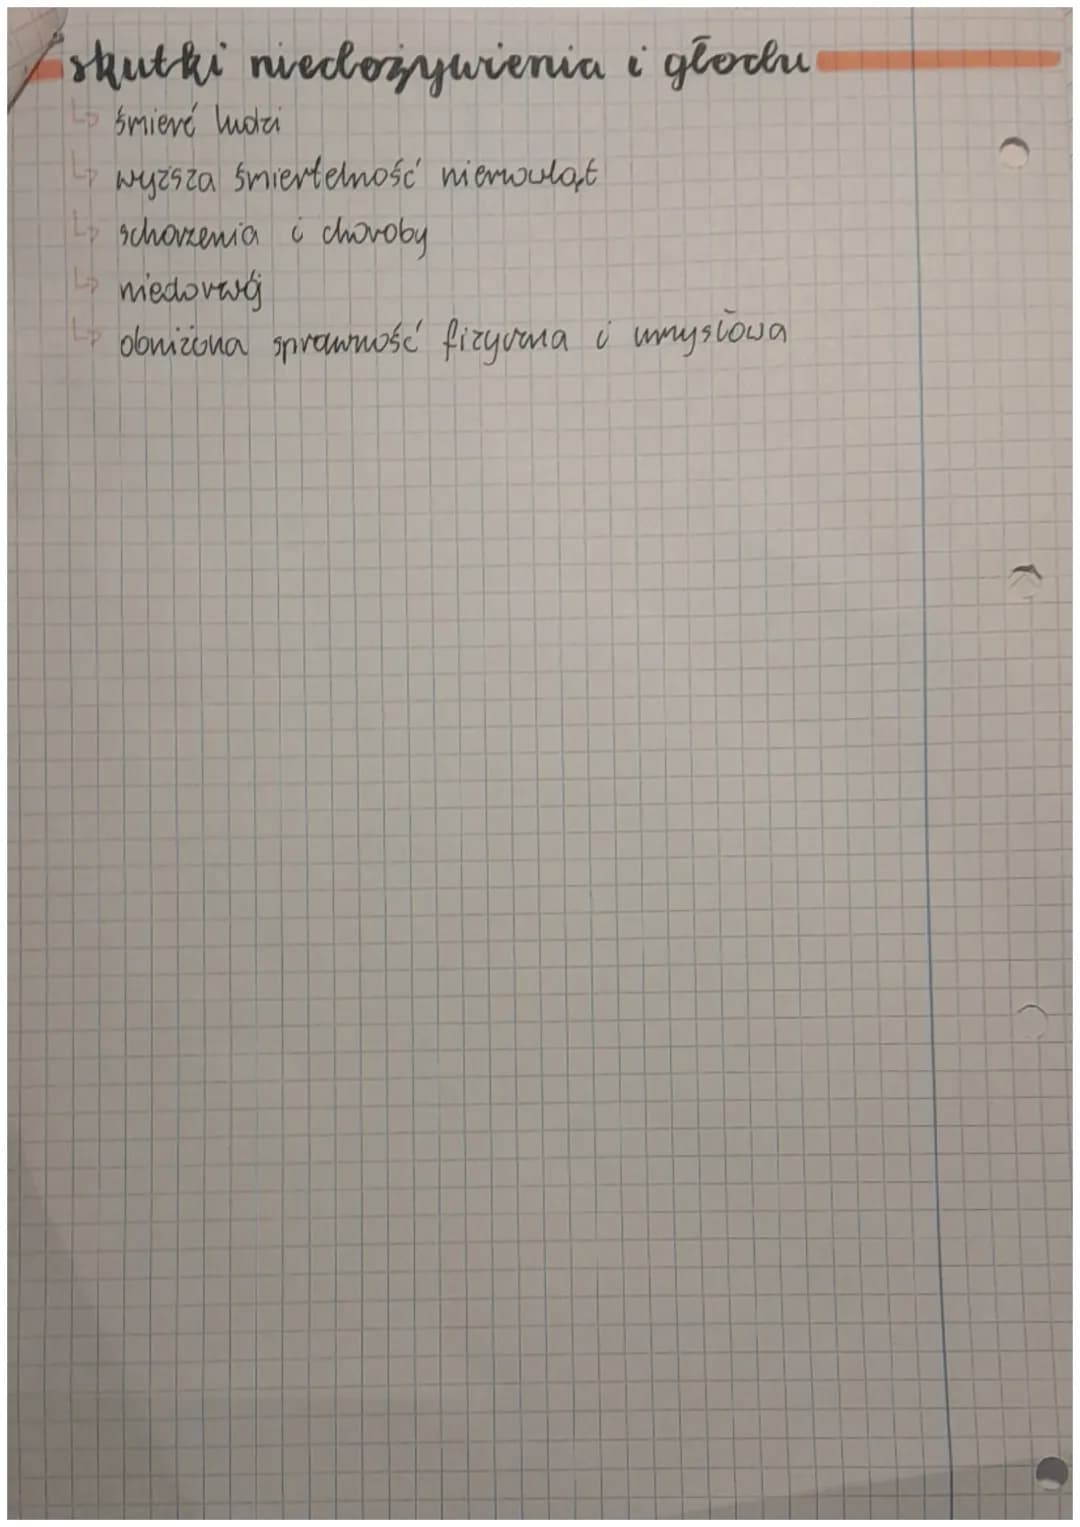 skutki niedożywienia i głodu
↳ śmierć ludzi
↳ wyższa śmiertelność niemowląt
↳ schorzenia i choroby
↳ niedorwój
↳ obniżona sprawność fizyczna i umysłowa